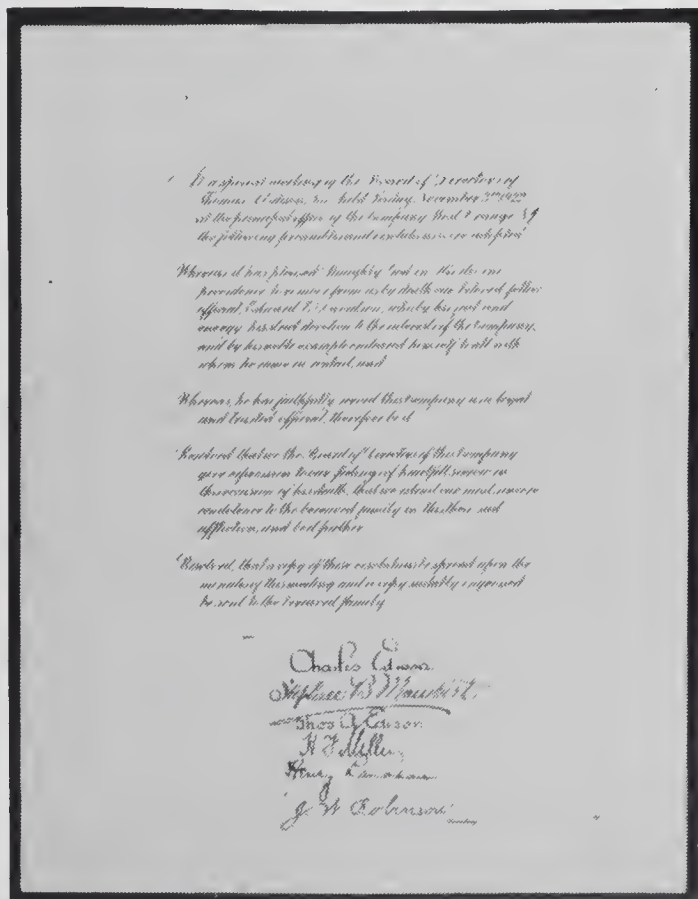 At a special meeting of the Board of Directors of
Thomas A. Edison, Inc. held Friday, November
at the principal office of the Company West Orange NJ
the following preamble and resolutions were adopted
Whereas it has pleased Almighty God in His divine
providence to remove from us by death our beloved fellow
official, Edward, who by his
energy, devotion to the interest of the Company,
and by his noble example endeared himself to all with
whom he came in contact, and
Whereas, he has faithfully served this Company as a loyal
and trusted official, therefore be it
Resolved that we the Board of Directors of this Company
give expression to our feeling of heartfelt sorrow on
the occasion of his death, that we extend our most sincere
condolence to the bereaved family in this their sad
affliction, and be it further
Resolved, that a copy of these resolutions be spread upon the
minutes of this meeting and a copy suitably engrossed
be sent to the bereaved family
Charles Edison
Stephen B Mambert
Thos A Edison
H F Miller
Henry Lanahan
J W Robinson